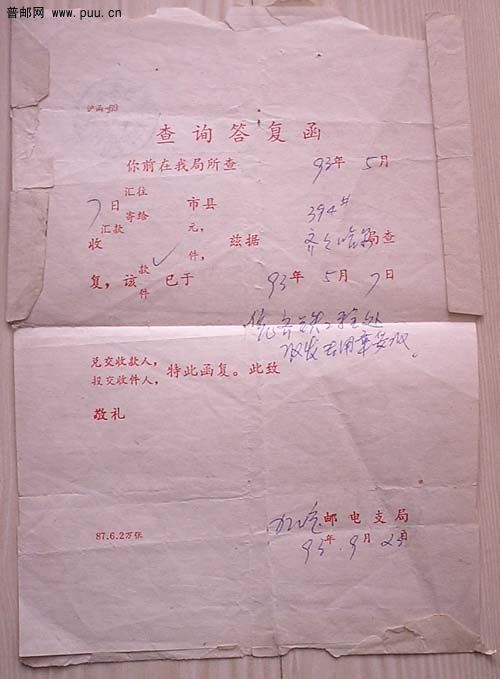 普邮网 www.puu.cn
沪函-89
查询答复函
你前在我局所查 93年 5月
7日 汇往 寄给 市县 394#
收 汇款 元, 件, 兹据 局查
复,该 款 件 已于 93年 5月 7日
兑交收款人,
投交收件人, 特此函复。此致
敬礼
87.6.2万张
邮电支局
93年 9月 2日